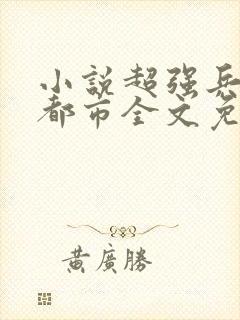 小說超强兵
都市全文免
黃廣勝